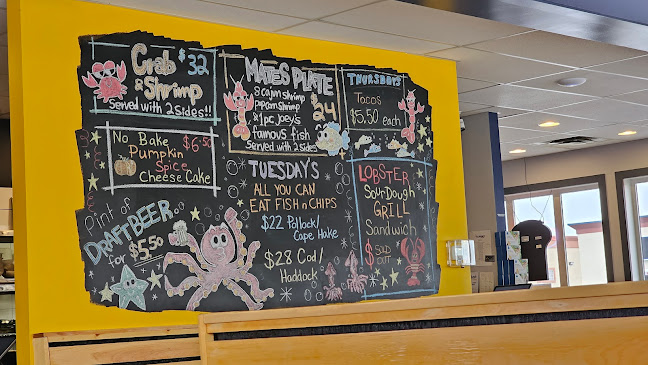 Crab & Shrimp $32
Served with 2 sides!!
No Bake $6.50
Pumpkin
Spice
Cheese Cake
Pint of
DRAFT BEER
For $5.50
MATES PLATE
8 cajun Shrimp $24
Popcorn Shrimp
& 1 pc. Joey's
famous fish
Served with 2 sides
TUESDAY'S
ALL YOU CAN
EAT FISH n CHIPS
$22 Pollock/
Cape Hake
$28 Cod/
Haddock
THURSDAYS
Tacos
$5.50 each
LOBSTER
SourDough
GRILL
Sandwich
$ SOLD
OUT